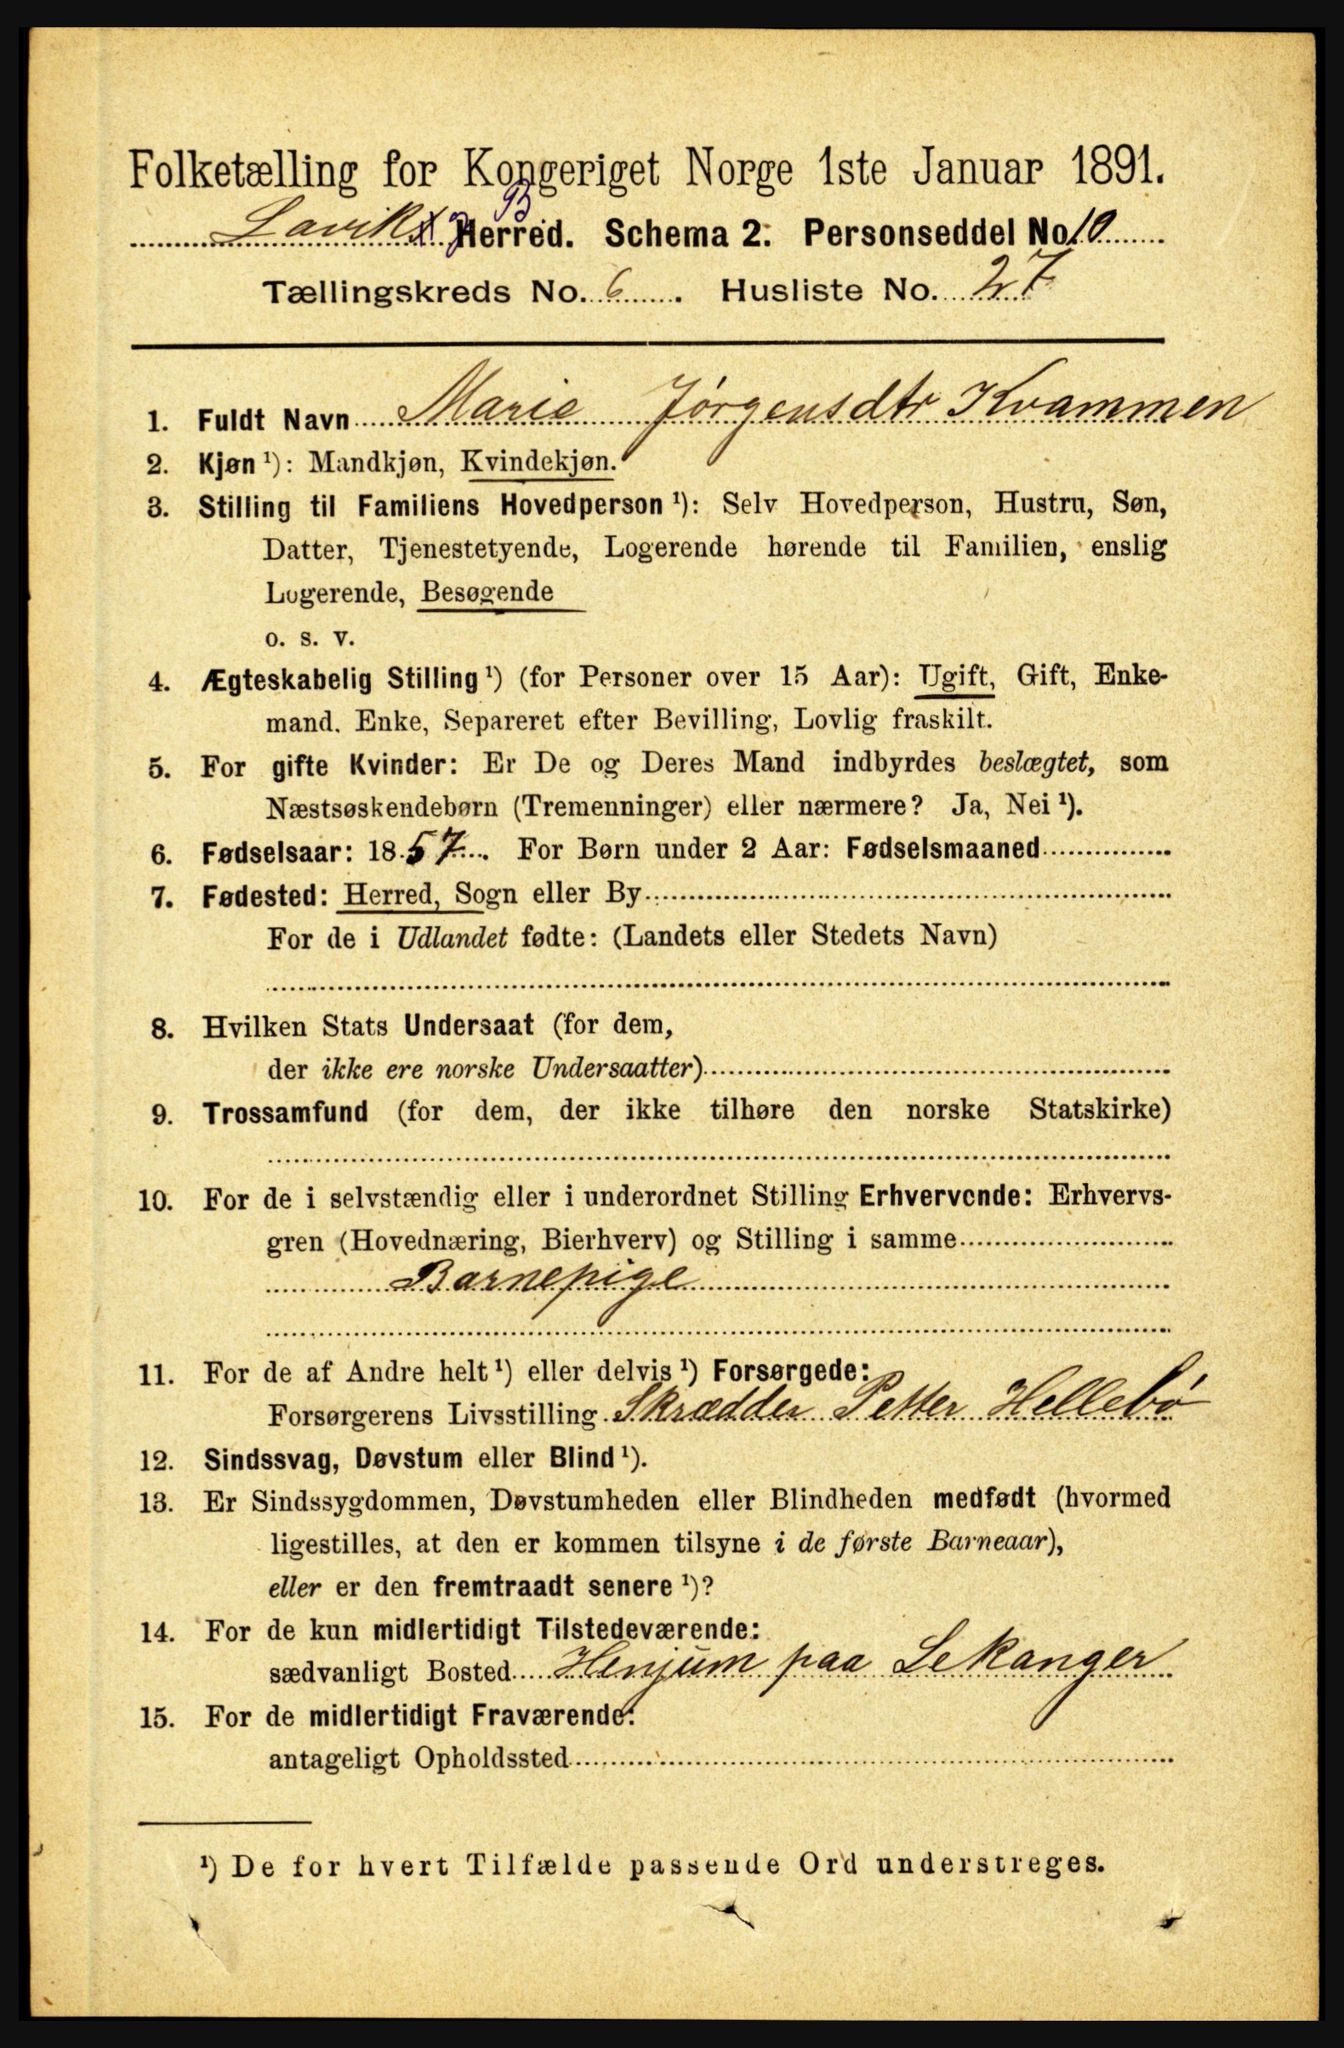 Folketælling for Kongeriget Norge 1ste Januar 1891.
Lavik og B Herred. Schema 2. Personseddel No. 10
Tællingskreds No. 6. Husliste No. 27
1. Fuldt Navn Marie Jørgensdtr Kvammen
2. Kjøn ¹): Mandkjøn, Kvindekjøn.
3. Stilling til Familiens Hovedperson ¹): Selv Hovedperson, Hustru, Søn,
Datter, Tjenestetyende, Logerende hørende til Familien, enslig
Logerende, Besøgende
o. s. v.
4. Ægteskabelig Stilling ¹) (for Personer over 15 Aar): Ugift, Gift, Enke-
mand. Enke, Separeret efter Bevilling, Lovlig fraskilt.
5. For gifte Kvinder: Er De og Deres Mand indbyrdes beslægtet, som
Næstsøskendebørn (Tremenninger) eller nærmere? Ja, Nei ¹).
6. Fødselsaar: 1857. For Børn under 2 Aar: Fødselsmaaned
7. Fødested: Herred, Sogn eller By
For de i Udlandet fødte: (Landets eller Stedets Navn)
8. Hvilken Stats Undersaat (for dem,
der ikke ere norske Undersaatter)
9. Trossamfund (for dem, der ikke tilhøre den norske Statskirke)
10. For de i selvstændig eller i underordnet Stilling Erhvervende: Erhvervs-
gren (Hovednæring, Bierhverv) og Stilling i samme
Barnepige
11. For de af Andre helt ¹) eller delvis ¹) Forsørgede:
Forsørgerens Livsstilling Skrædder Petter Hellebø
12. Sindssvag, Døvstum eller Blind ¹).
13. Er Sindssygdommen, Døvstumheden eller Blindheden medfødt (hvormed
ligestilles, at den er kommen tilsyne i de første Barneaar),
eller er den fremtraadt senere ¹)?
14. For de kun midlertidigt Tilstedeværende:
sædvanligt Bosted Henjum paa Lekanger
15. For de midlertidigt Fraværende:
antageligt Opholdssted
¹) De for hvert Tilfælde passende Ord understreges.